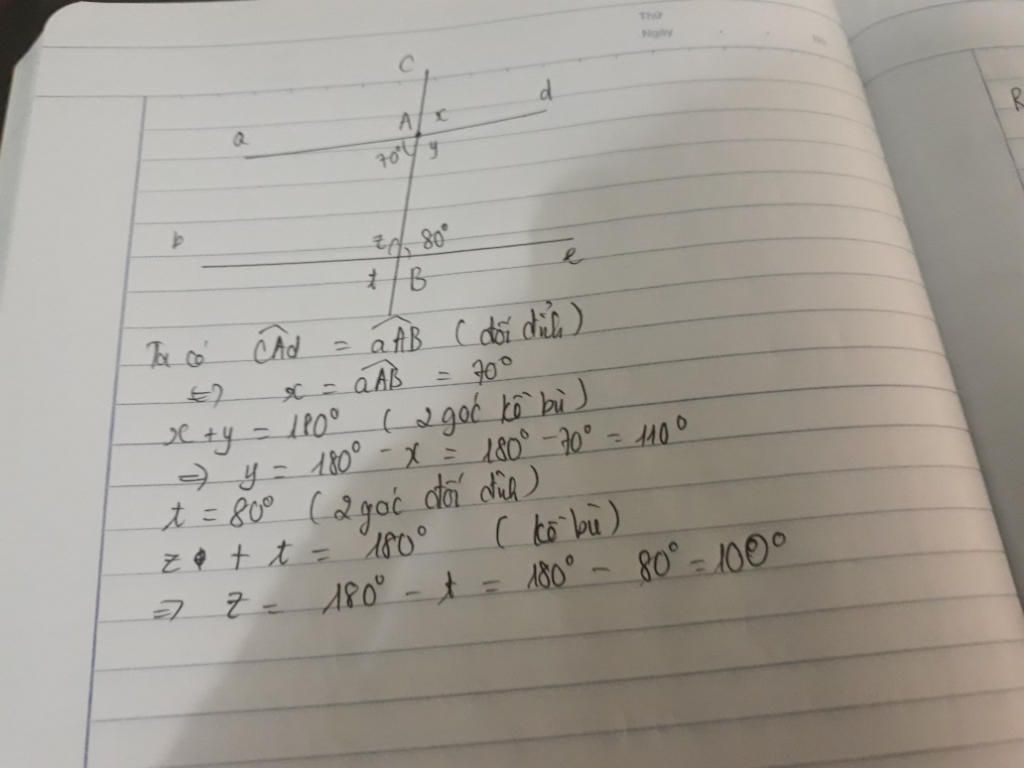 Thứ
Ngày
No.
C
d
A x
a
70° y
b z 80°
e
t B
R
Ta có CAd = aAB (đối đỉnh)
<=> x = aAB = 70°
x + y = 180° (2 góc kề bù)
=> y = 180° - x = 180° - 70° = 110°
t = 80° (2 góc đối đỉnh)
z + t = 180° (kề bù)
=> z = 180° - t = 180° - 80° = 100°